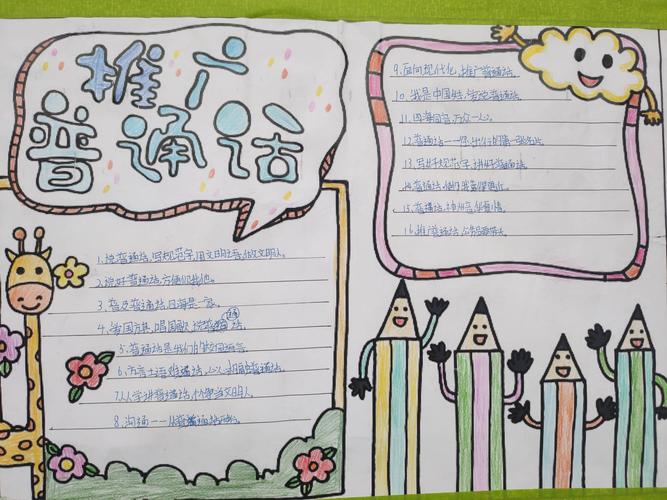 推广
普通话
1.说普通话,写规范字,用文明语,做文明人。
2.说好普通话,方便你我他。
3.普及普通话,四海是一家。
4.爱国旗,唱国歌,说普通话。
5.普通话是我们的校园语言。
6.方言土语难
7.人人学讲普通话,争当文明人。
8.沟通——从普通话开始。
9.面向现代化,推广普通话。
10.我是中国娃,爱说普通话。
11.四海同音,万众一心。
12.普通话——你 的第一张名片。
13.写好规范字,讲好普通话。
14.普通话,
15.普通话,神州音,华夏情。
16.推广普通话,